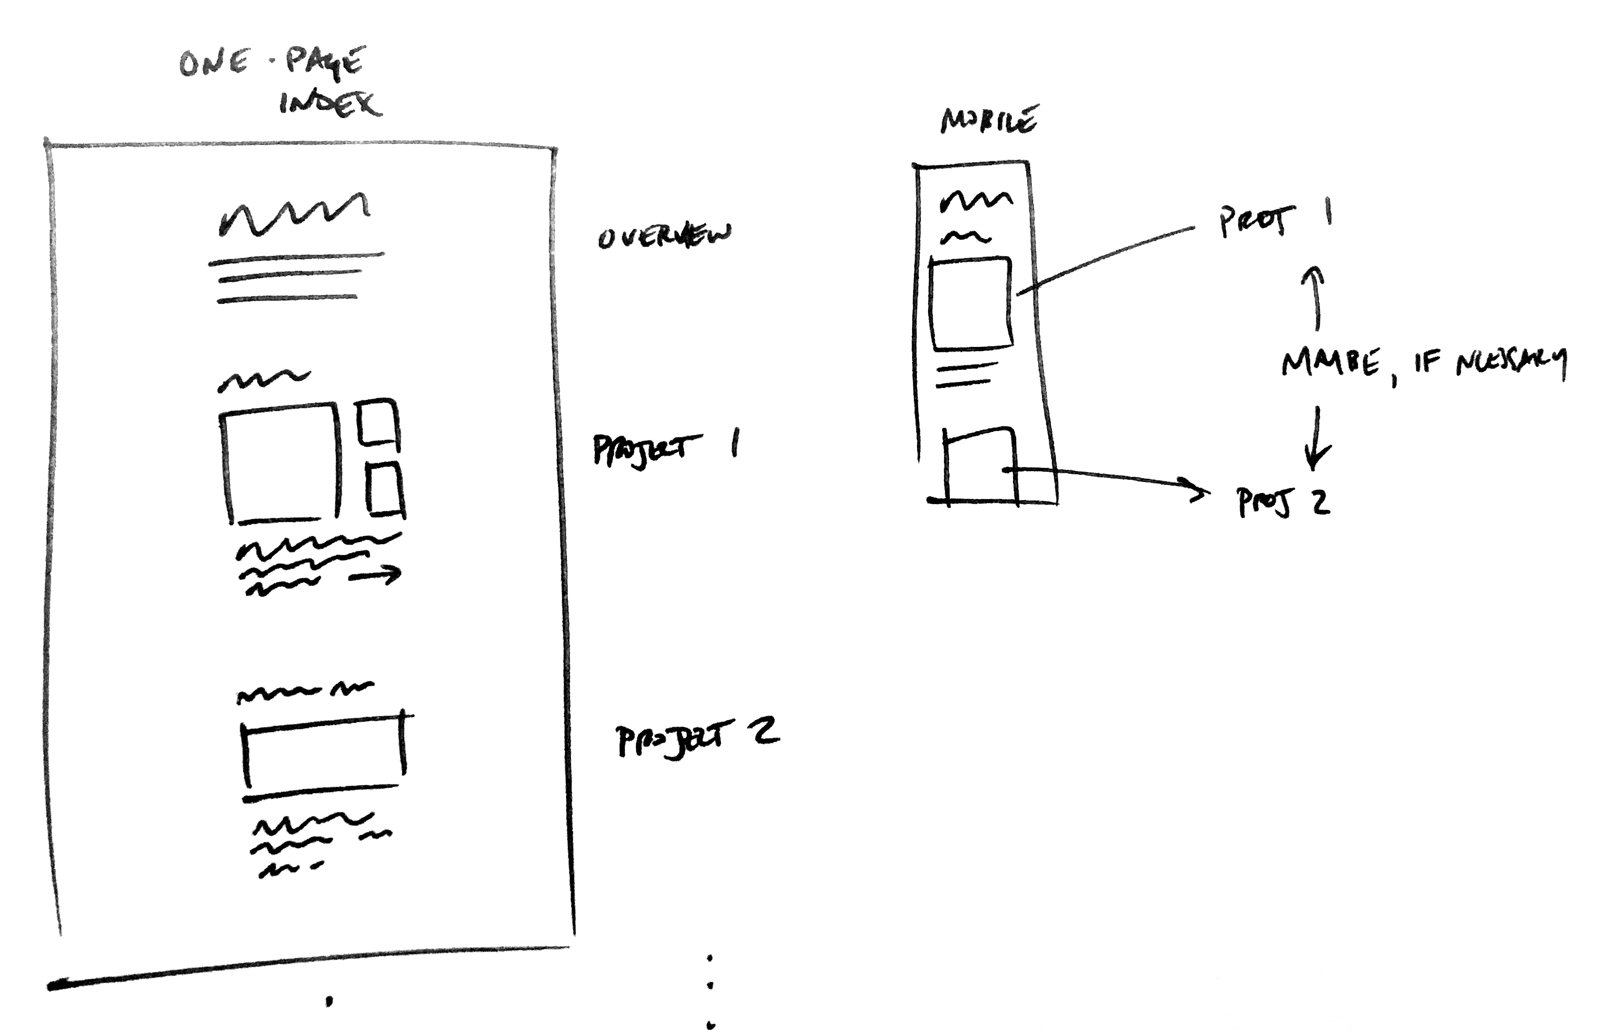 ONE-PAGE
INDEX
OVERVIEW
PROJECT 1
PROJECT 2
MOBILE
PROJ 1
MAYBE, IF NECESSARY
PROJ 2